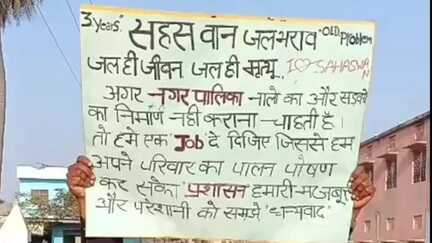 3 years' सहसवान जलभराव "OLD" Problem
जल ही जीवन जल ही मृत्यु I ♡ SAHASWAN
अगर नगर पालिका नाले का और सड़को
का निर्माण नही कराना चाहती है
तो हमे एक "Job" दे दिजिए जिससे हम
अपने परिवार का पालन पोषण
कर सके प्रशासन हमारी मजबूरी
और परेशानी को समझे "धन्यवाद"